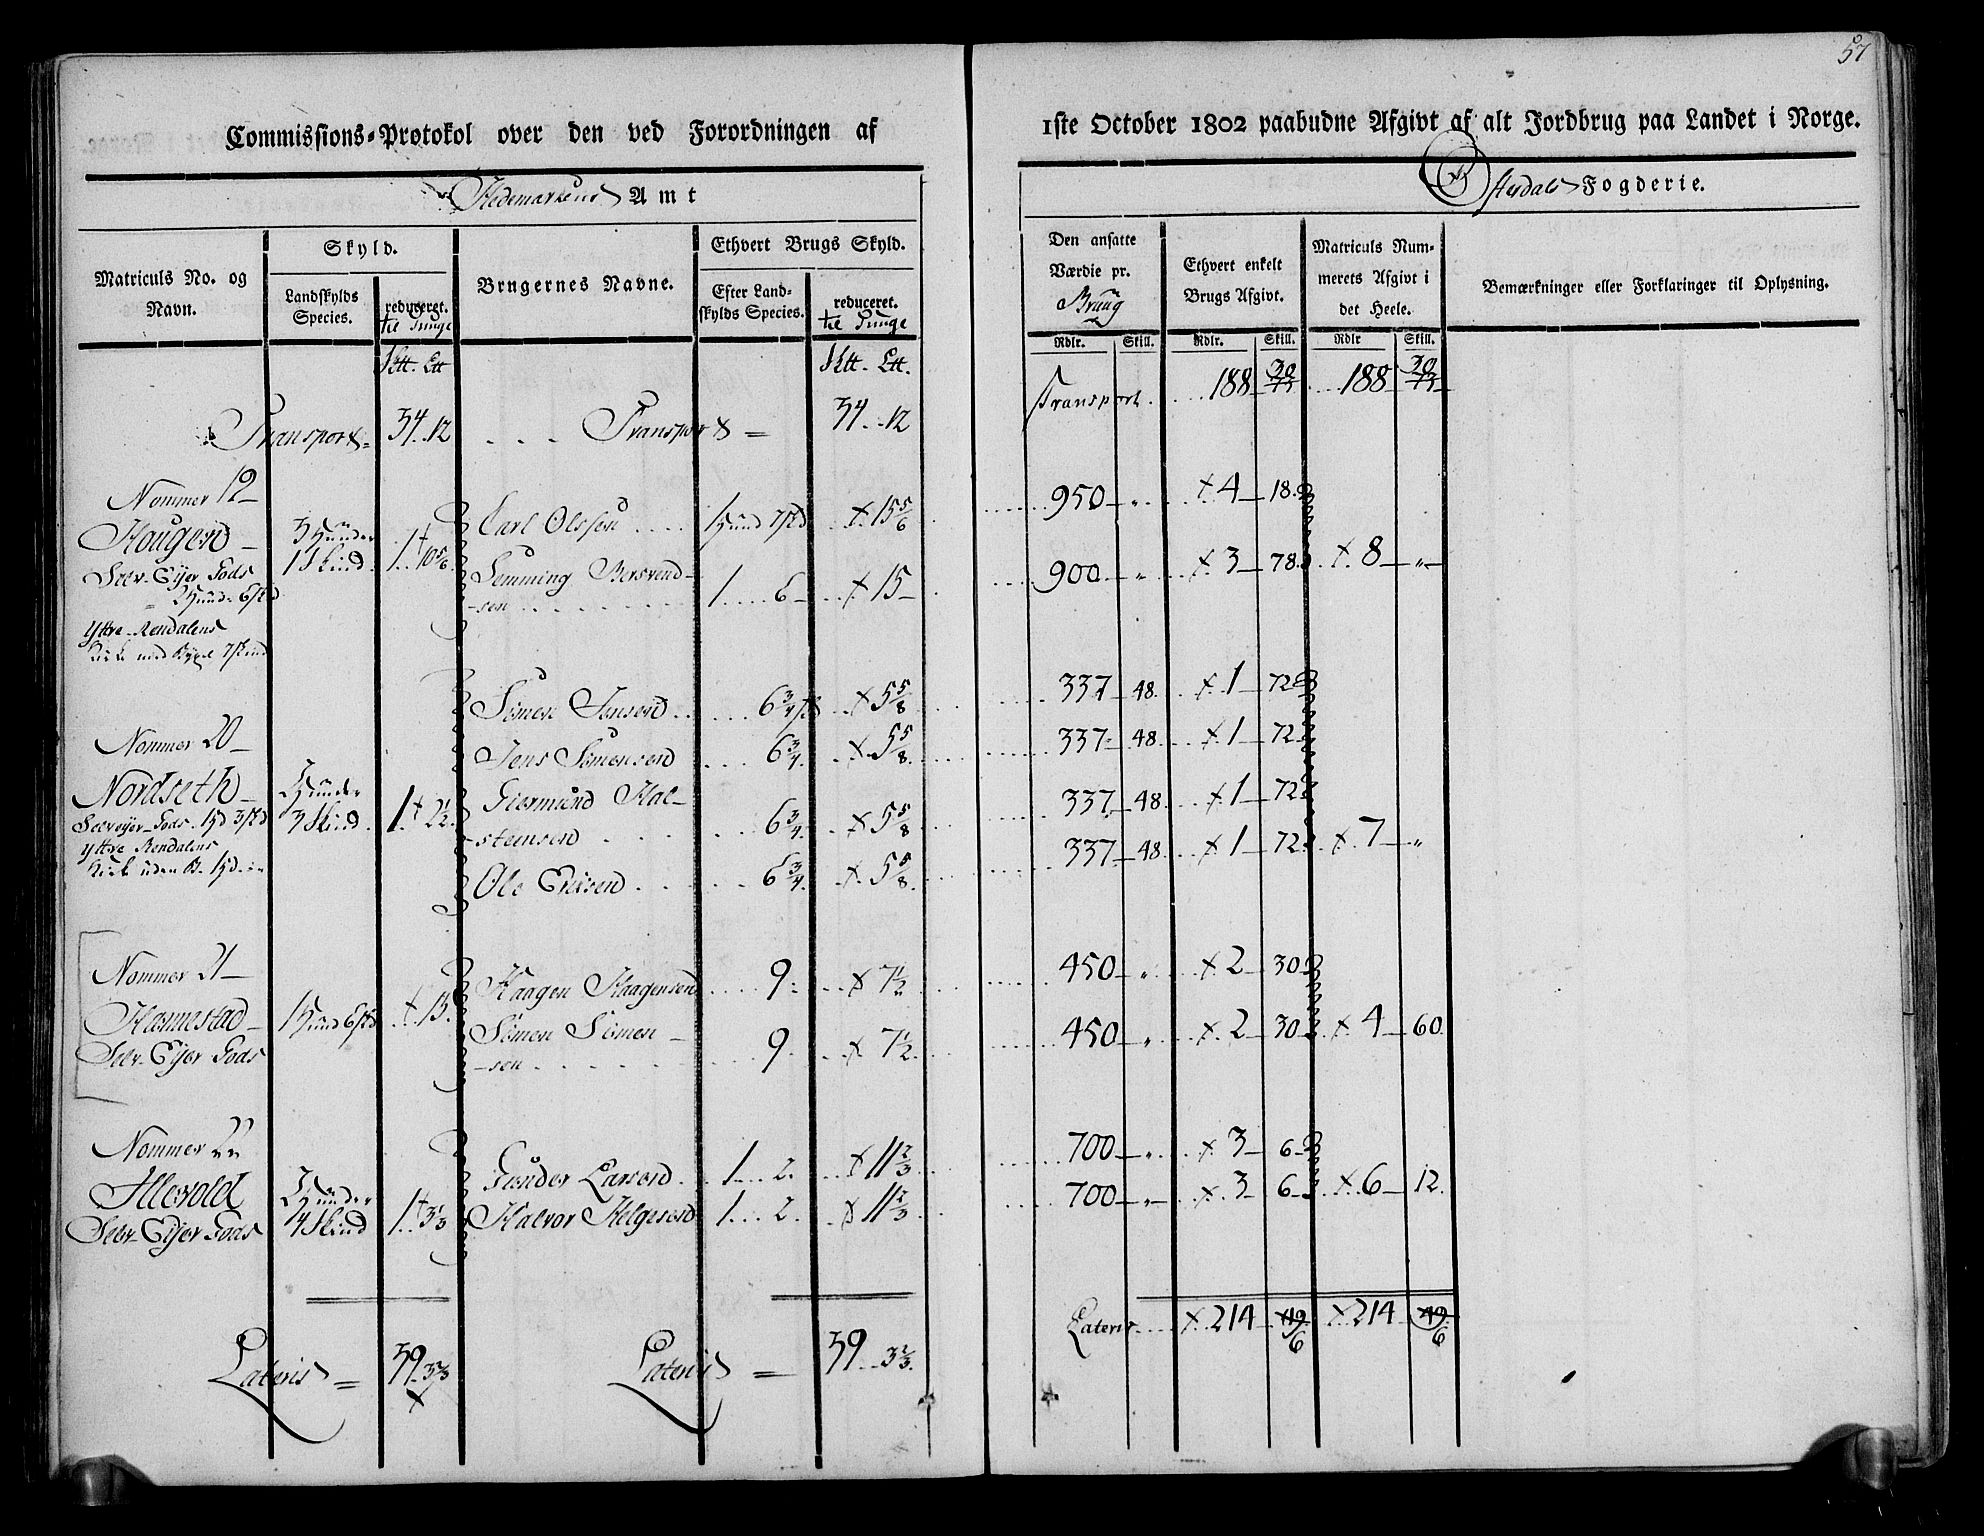 57
Commissions-Protokol over den ved Forordningen af
1ste October 1802 paabudne Afgivt af alt Jordbrug paa Landet i Norge.
Hedemarkens Amt
Østerdals Fogderie.
Matriculs No. og Navn.
Skyld.
Landskylds Species.
reduceret. til Tunge
Brugernes Navne.
Ethvert Brugs Skyld.
Efter Landskylds Species.
reduceret. til Tunge
Den ansatte Værdie pr. Bruug
Ethvert enkelt Brugs Afgivt.
Matriculs Nummerets Afgivt i det Heele.
Bemærkninger eller Forklaringer til Oplysning.
Rdlr. Skill. Rdlr. Skill. Rdlr Skill.
Transport 34 12 Transport = 34 12
Transport 188 188
Nommer 19
Haugen 3 Huuder 1 Skind 1 10 5/6
Selv-Eijer Gods
2 Huud 6 skd
Yttre Rendalens
Kirke med Bygsel 7 skind
Carl Olssen 1 Huud 7 skd 15 5/6 950 4 18
Lemming Bersvend-
sen 1 6 15 900 3 78 8
Nommer 20
Nordseth 2 Huuder 3 Skind 1 2 1/2
Selvejer Gods 1 hd 3 skd
Yttre Rendalens
Kirk uden B. 1 hd
Simen Jensen 6 3/4 skd 5 5/8 337 48 1 72
Jens Simensen 6 3/4 5 5/8 337 48 1 72
Giermund Hal-
steensen 6 3/4 5 5/8 337 48 1 72
Ole Ericsen 6 3/4 5 5/8 337 48 1 72 7
Nommer 21
Harnestad 1 Huud 6 skd 15
Selv-Eijer Gods
Haagen Haagensen 9 7 1/2 450 2 30
Simen Simen-
sen 9 7 1/2 450 2 30 4 60
Nommer 22
Illevold 2 Huuder 4 Skind 1 3 1/3
Selv-Eijer Gods
Gunder Larsen 1 2 11 2/3 700 3 6
Halvor Helgesen 1 2 11 2/3 700 3 6 6 12
Lateris = 39 3 2/3 Lateris = 39 3 2/3
Lateris 214 6 214 6